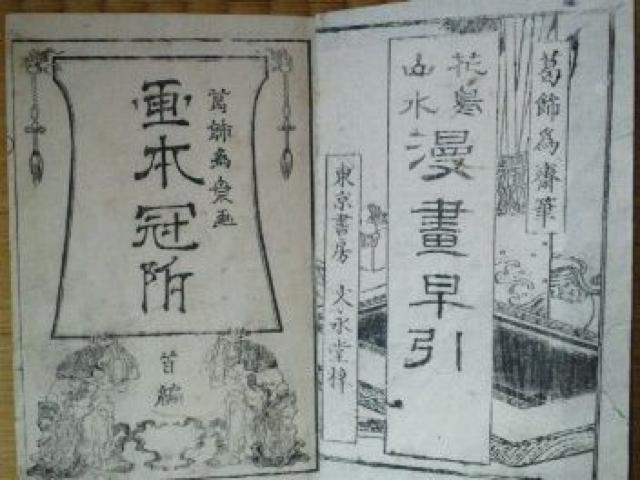 葛飾為齋筆
花鳥
山水
漫畫早引
東京書房 文永堂梓
葛飾為齋画
画本冠附
首編